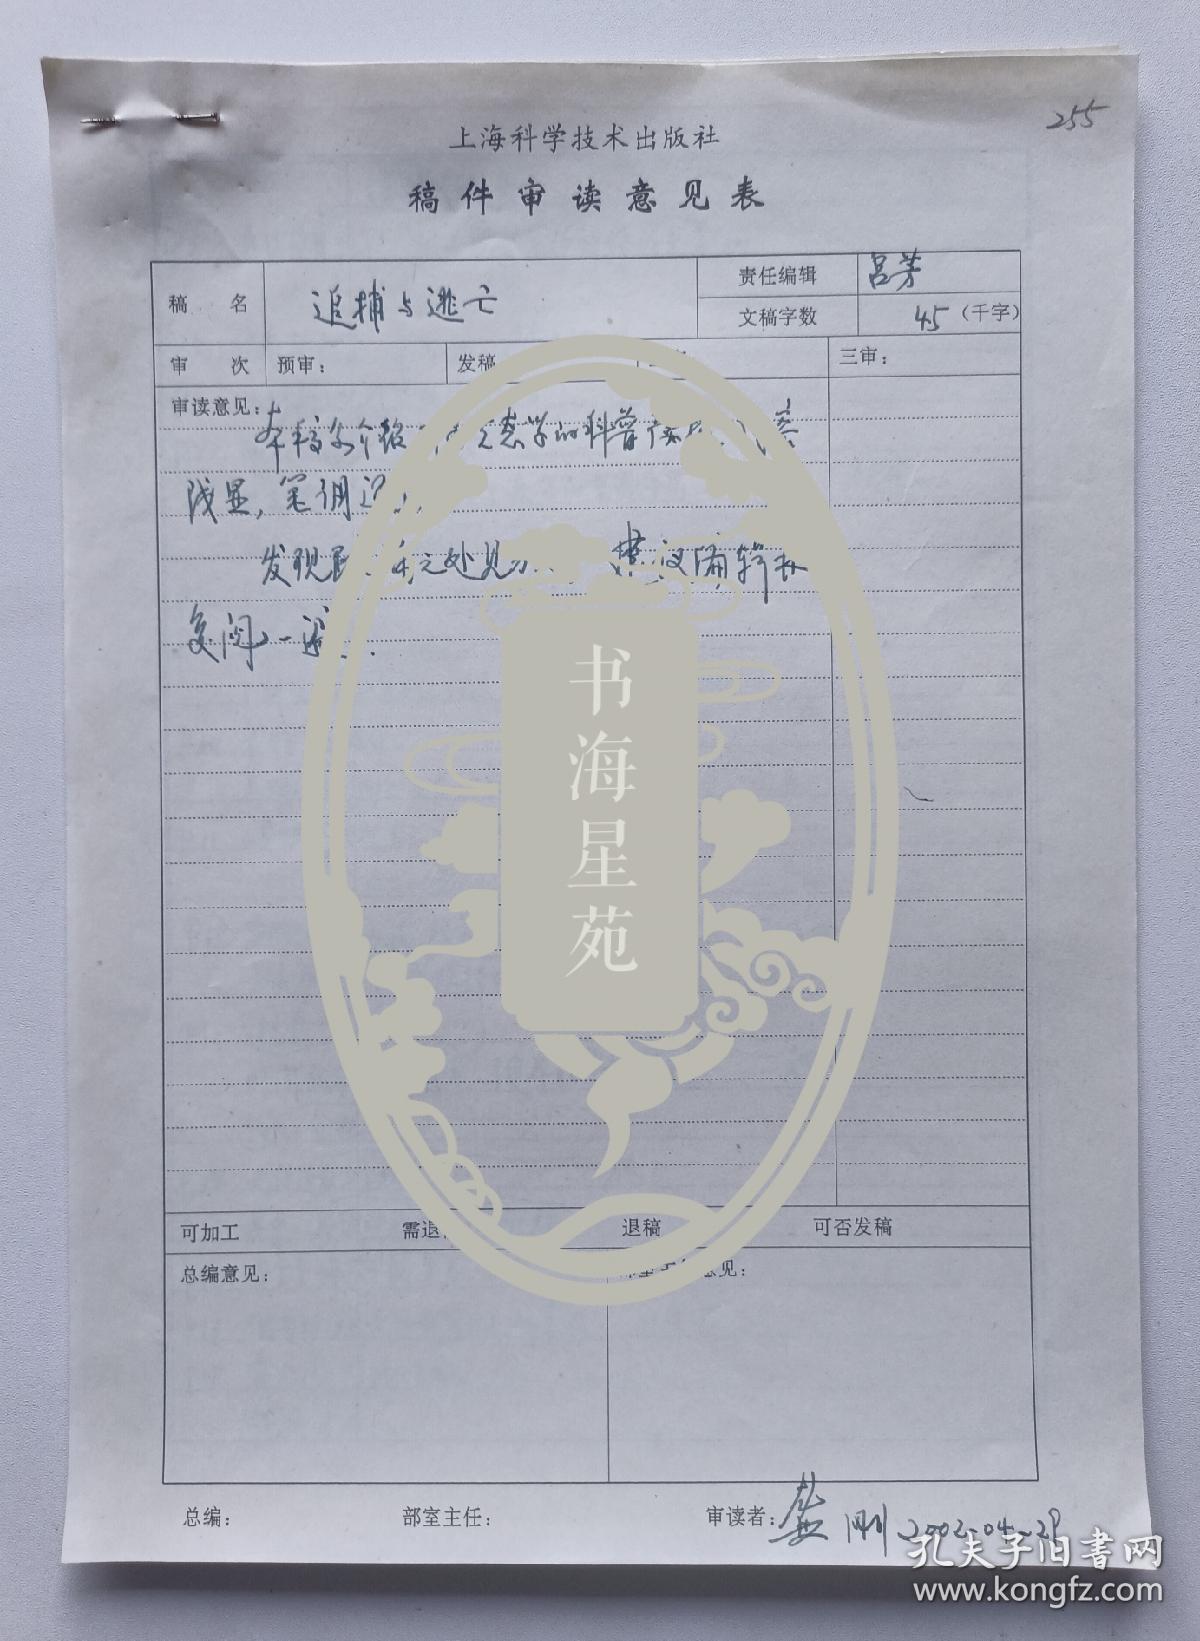 255
上海科学技术出版社
稿件审读意见表
稿 名 追捕与逃亡 责任编辑 吕芳
文稿字数 45 (千字)
审 次 预审: 发稿 三审:
审读意见:
本稿为介绍 态学的科普读
浅显,笔调
发现 处见 建议编辑在
复阅一遍
书海星苑
可加工 需退 退稿 可否发稿
总编意见: 意见:
总编: 部室主任: 审读者: 龚刚 2002-04-29
孔夫子旧書网
www.kongfz.com